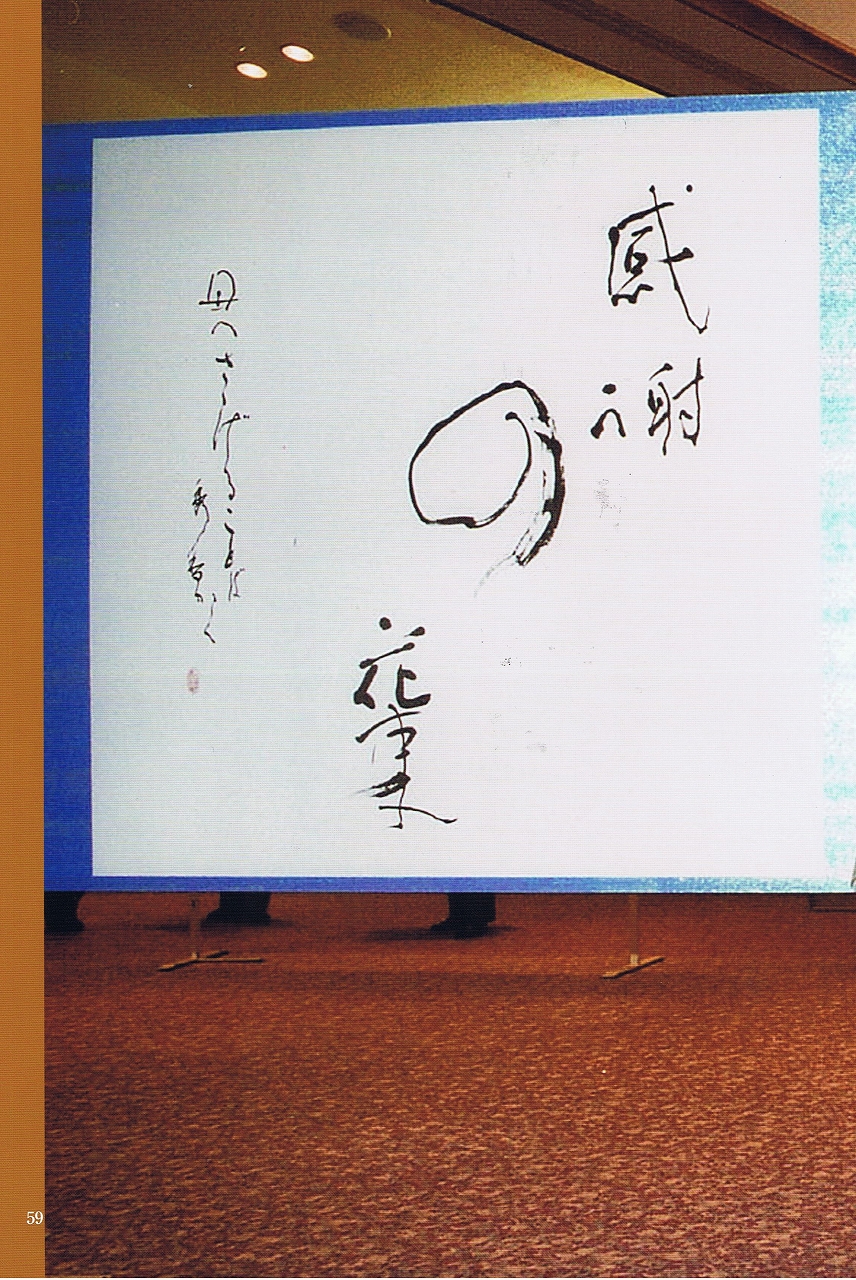 感謝
の
花束
母へささげることば
秀香かく
59